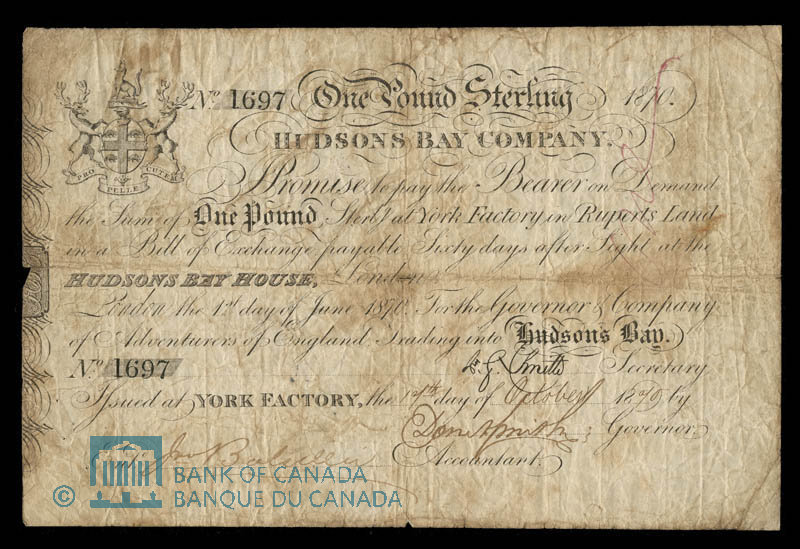 No 1697 One Pound Sterling 1870.
HUDSONS BAY COMPANY.
PRO PELLE CUTEM
I Promise to pay the Bearer on Demand
the Sum of One Pound, Sterlg at York Factory in Ruperts Land
in a Bill of Exchange payable Sixty days after Sight at the
HUDSONS BAY HOUSE, London
London the 1st day of June 1870. For the Governor & Company
of Adventurers of England Trading into Hudsons Bay.
No 1697 Smith Secretary
Issued at YORK FACTORY, the day of October 1870 by
Don A Smith Governor.
Accountant.
© BANK OF CANADA
BANQUE DU CANADA